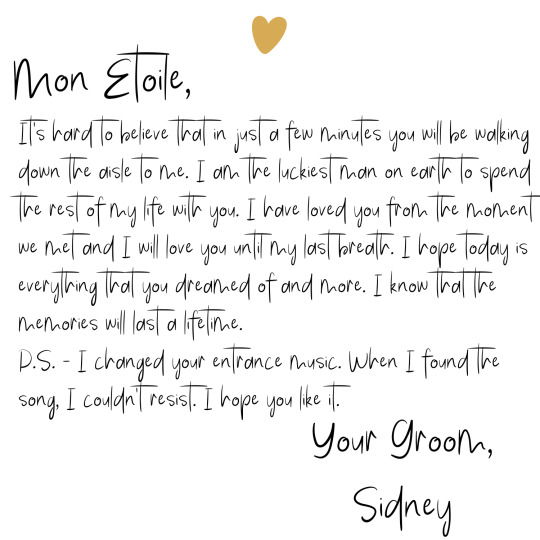 Mon Etoile,
It's hard to believe that in just a few minutes you will be walking
down the aisle to me. I am the luckiest man on earth to spend
the rest of my life with you. I have loved you from the moment
we met and I will love you until my last breath. I hope today is
everything that you dreamed of and more. I know that the
memories will last a lifetime.
P.S. - I changed your entrance music. When I found the
song, I couldn't resist. I hope you like it.
Your Groom,
Sidney